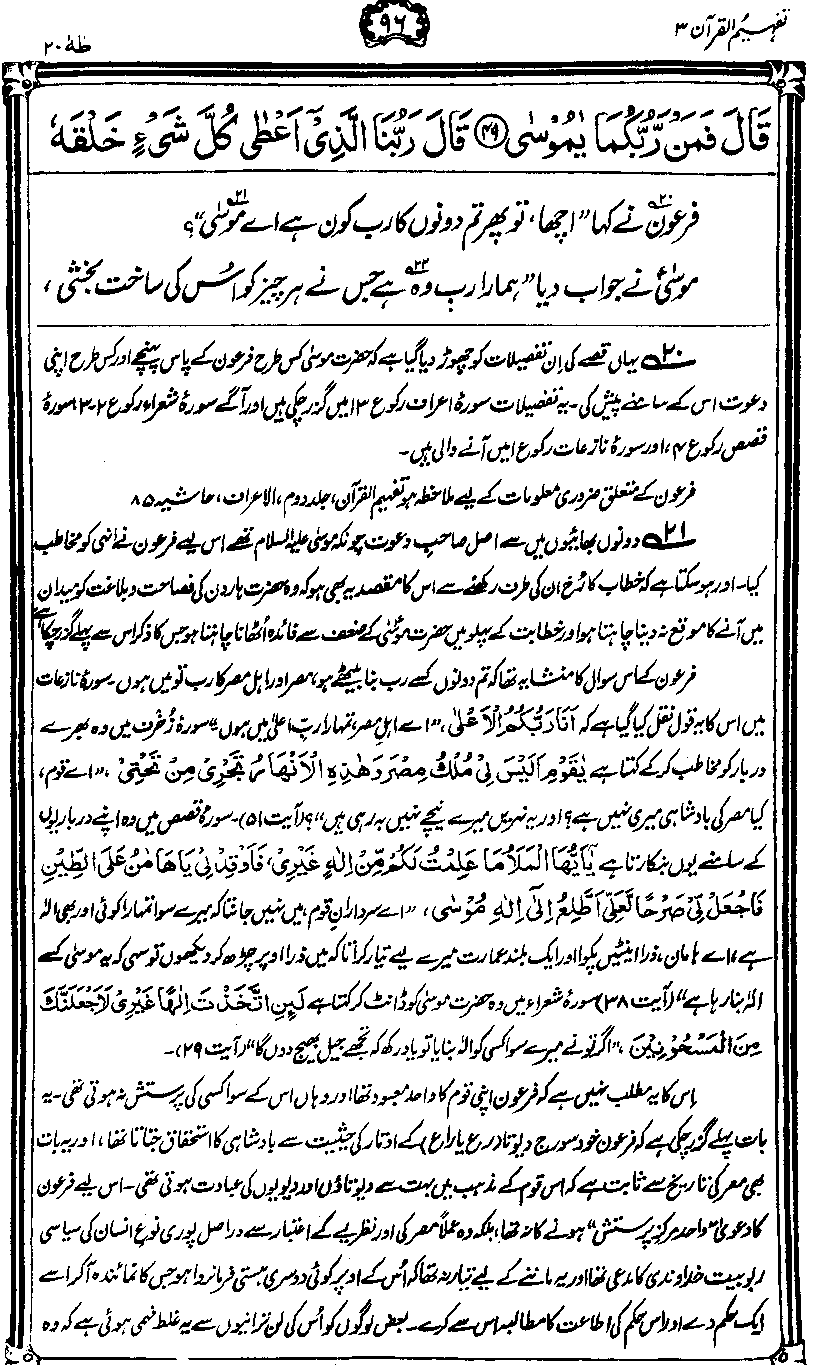 تفہیم القرآن ۳
۹۶
طٰہٰ ۲۰
قَالَ فَمَنْ رَّبُّكُمَا يٰمُوْسٰى ﴿۴۹﴾ قَالَ رَبُّنَا الَّذِيْٓ اَعْطٰى كُلَّ شَيْءٍ خَلْقَهٗ
فرعون۲۰ نے کہا ”اچھا، تو پھر تم دونوں کا رب کون ہے اے موسیٰ۲۱“؟
موسیٰؑ نے جواب دیا ”ہمارا رب وہ۲۲ ہے جس نے ہر چیز کو اُس کی ساخت بخشی،
۲۰ یہاں قصے کی ان تفصیلات کو چھوڑ دیا گیا ہے کہ حضرت موسیٰ کس طرح فرعون کے پاس پہنچے اور کس طرح اپنی
دعوت اس کے سامنے پیش کی۔ یہ تفصیلات سورۂ اعراف رکوع ۱۳ میں گزر چکی ہیں اور آگے سورۂ شعراء رکوع ۲-۳، سورۂ
قصص رکوع ۴، اور سورۂ نازعات رکوع ۱ میں آنے والی ہیں۔
فرعون کے متعلق ضروری معلومات کے لیے ملاحظہ ہو تفہیم القرآن، جلد دوم، الاعراف، حاشیہ ۸۵
۲۱ دونوں بھائیوں میں سے اصل صاحبِ دعوت چونکہ موسیٰ علیہ السلام تھے اس لیے فرعون نے انہی کو مخاطب
کیا۔ اور ہو سکتا ہے کہ خطاب کا رُخ ان کی طرف رکھنے سے اس کا مقصد یہ بھی ہو کہ وہ حضرت ہارون کی فصاحت و بلاغت کو میدان
میں آنے کا موقع نہ دینا چاہتا ہو اور خطابت کے پہلو میں حضرت موسیٰ کے ضعف سے فائدہ اُٹھانا چاہتا ہو جس کا ذکر اس سے پہلے گزر چکا ہے
فرعون کے اس سوال کا منشا یہ تھا کہ تم دونوں کسے رب بنا بیٹھے ہو، مصر اور اہل مصر کا رب تو میں ہوں۔ سورۂ نازعات
میں اس کا یہ قول نقل کیا گیا ہے کہ اَنَا رَبُّكُمُ الْاَعْلٰى، ”اے اہل مصر، تمہارا رب اعلیٰ میں ہوں“ سورۂ زُخرُف میں وہ بھرے
دربار کو مخاطب کر کے کہتا ہے يٰقَوْمِ اَلَيْسَ لِيْ مُلْكُ مِصْرَ وَهٰذِهِ الْاَنْهَارُ تَجْرِيْ مِنْ تَحْتِيْ، ”اے قوم،
کیا مصر کی بادشاہی میری نہیں ہے؟ اور یہ نہریں میرے نیچے نہیں بہ رہی ہیں“؟ (آیت ۵۱)۔ سورۂ قصص میں وہ اپنے درباریوں
کے سامنے یوں ہنکارتا ہے يٰٓاَيُّهَا الْمَلَاُ مَا عَلِمْتُ لَكُمْ مِّنْ اِلٰهٍ غَيْرِيْ، فَاَوْقِدْ لِيْ يَا هَامٰنُ عَلَى الطِّيْنِ
فَاجْعَلْ لِّيْ صَرْحًا لَّعَلِّيْٓ اَطَّلِعُ اِلٰٓى اِلٰهِ مُوْسٰى، ”اے سردارانِ قوم، میں نہیں جانتا کہ میرے سوا تمہارا کوئی اور بھی الٰہ
ہے، اے ہامان، ذرا اینٹیں پکوا اور ایک بلند عمارت میرے لیے تیار کرا تاکہ میں ذرا اوپر چڑھ کر دیکھوں تو سہی کہ یہ موسیٰ کسے
الٰہ بنا رہا ہے“ (آیت ۳۸) سورۂ شعراء میں وہ حضرت موسیٰ کو ڈانٹ کر کہتا ہے لَىِٕنِ اتَّخَذْتَ اِلٰهًا غَيْرِيْ لَاَجْعَلَنَّكَ
مِنَ الْمَسْجُوْنِيْنَ، ”اگر تو نے میرے سوا کسی کو الٰہ بنایا تو یاد رکھ کہ تجھے جیل بھیج دوں گا“ (آیت ۲۹)۔
اس کا یہ مطلب نہیں ہے کہ فرعون اپنی قوم کا واحد معبود تھا اور وہاں اس کے سوا کسی کی پرستش نہ ہوتی تھی۔ یہ
بات پہلے گزر چکی ہے کہ فرعون خود سورج دیوتا (رع یا راع) کے اوتار کی حیثیت سے بادشاہی کا استحقاق جتاتا تھا، اور یہ بات
بھی مصر کی تاریخ سے ثابت ہے کہ اس قوم کے مذہب میں بہت سے دیوتاؤں اور دیویوں کی عبادت ہوتی تھی۔ اس لیے فرعون
کا دعویٰ ”واحد مرکزِ پرستش“ ہونے کا نہ تھا، بلکہ وہ عملاً مصر کی اور نظریے کے اعتبار سے دراصل پوری نوع انسان کی سیاسی
ربوبیت و خداوندی کا مدعی تھا اور یہ ماننے کے لیے تیار نہ تھا کہ اُس کے اوپر کوئی دوسری ہستی فرمانروا ہو جس کا نمائندہ آکر اسے
ایک حکم دے اور اس حکم کی اطاعت کا مطالبہ اس سے کرے۔ بعض لوگوں کو اُس کی لن ترانیوں سے یہ غلط فہمی ہوئی ہے کہ وہ